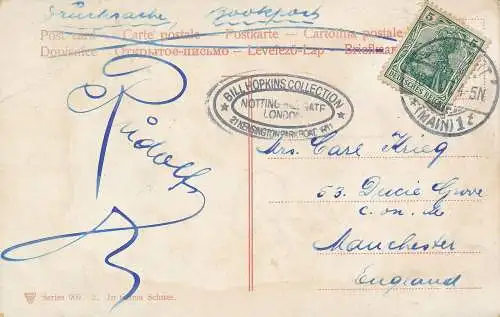 Drucksache, Bookpost
Post card – Carte postale – Postkarte – Cartolina postale
Dopisnice – Открытое письмо – Levelező-Lap – Briefkaart
5 5
DEUTSCHES REICH
4-5N.
(MAIN) 1
★ BILL HOPKINS COLLECTION ★
NOTTING HILL GATE
LONDON
21 KENSINGTON PARK ROAD W11
Rudolf
Mrs. Carl Krieg
53. Ducie Grove
C. on. M
Manchester
England
Series 907. In